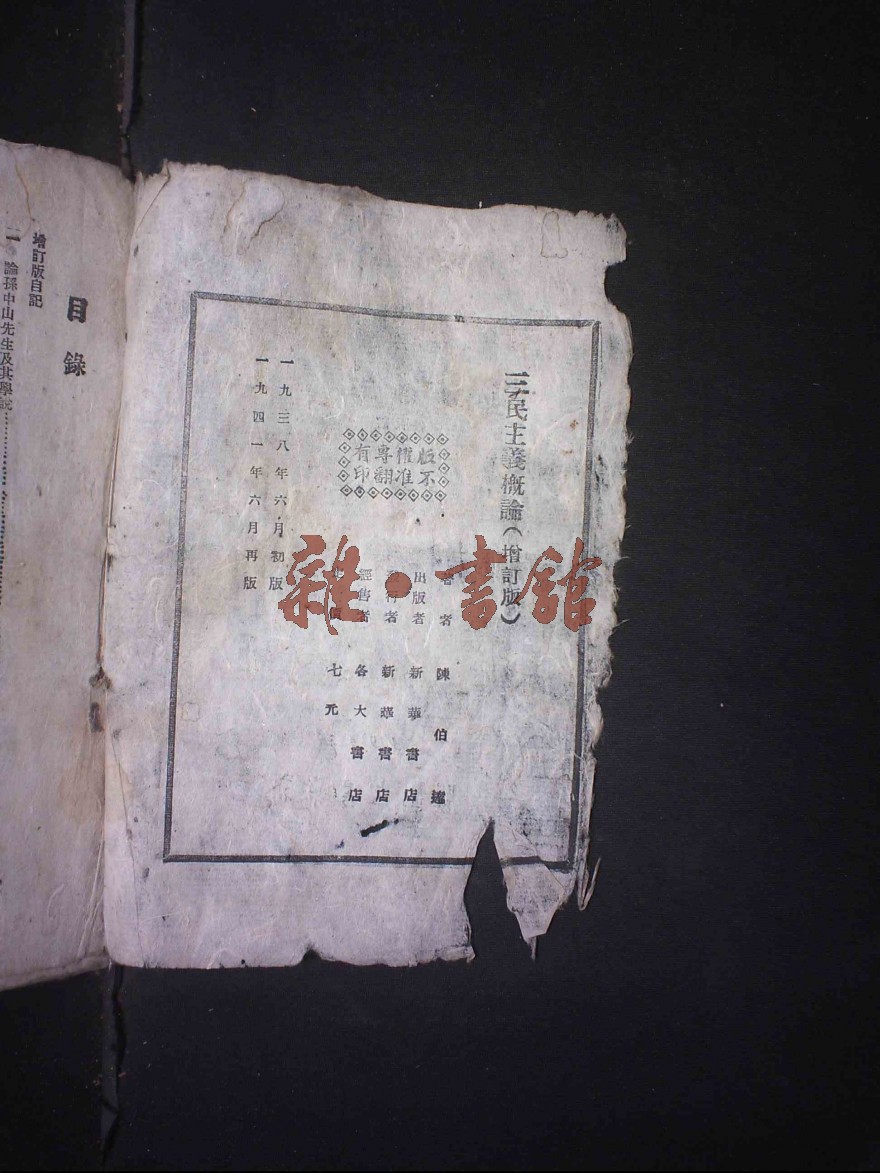 三民主義概論(增訂版)
著者 陳伯達
出版者 新華書店
發行者 新華書店
經售者 各大書店
七元
版權專有
不准翻印
一九三八年六月初版
一九四一年六月再版
目錄
增訂版自記
論孫中山先生及其學說
雜·書館